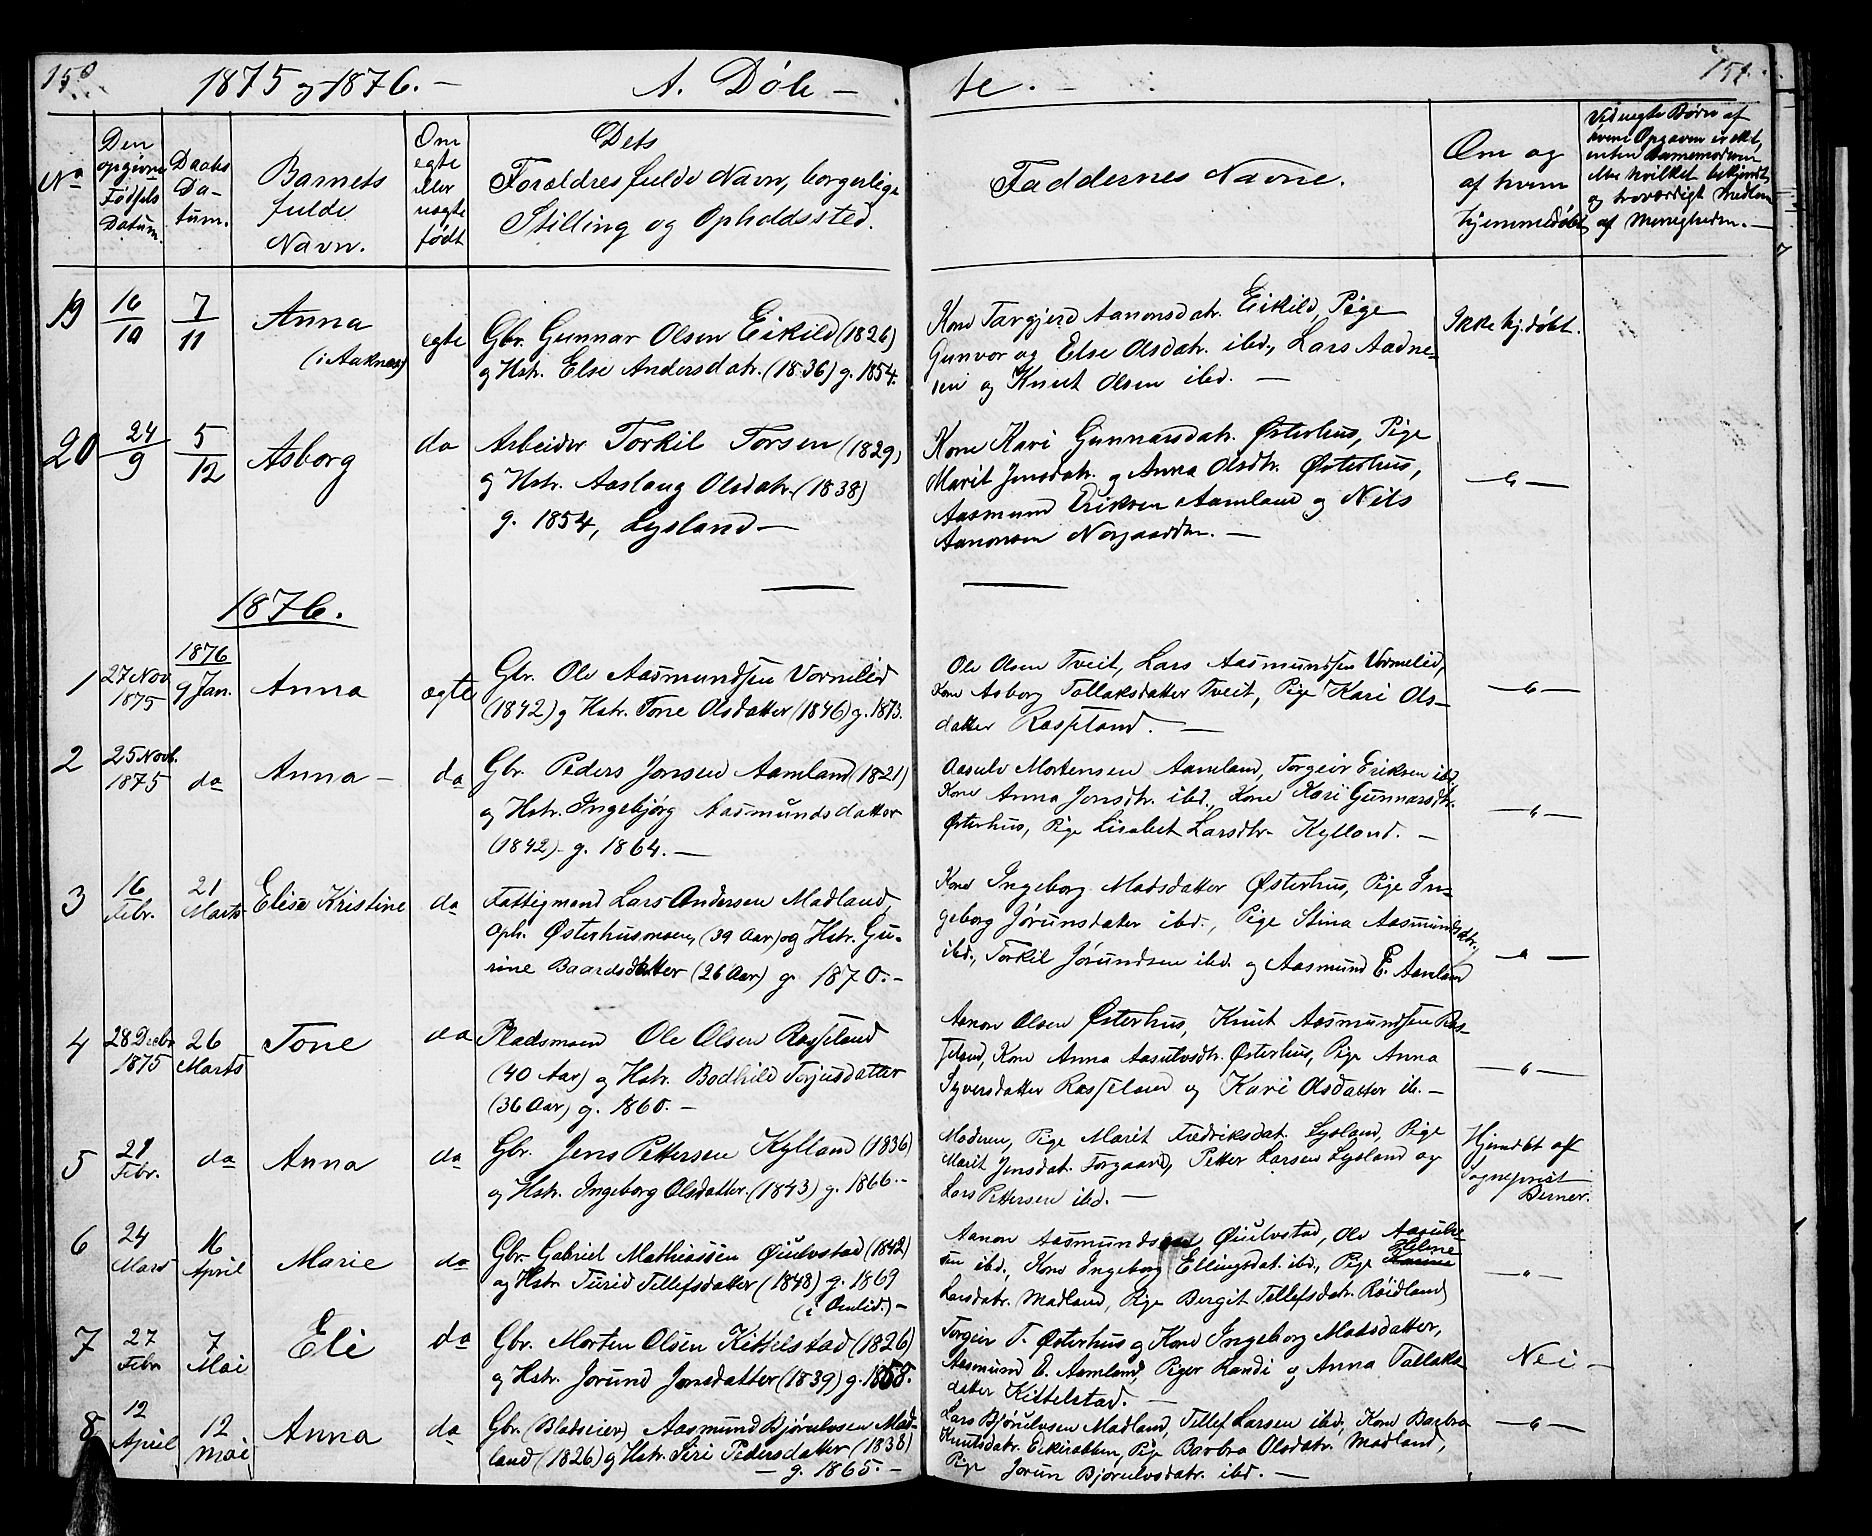 150
1875 og 1876. —
A. Døb — te. —
151.
No
Den opgivne Fødsels Datum.
Daabs Da- tum.
Barnets fulde Navn.
Om egte eller uegte født
Dets Forældres fulde Navn, borgerlige Stilling og Opholdssted.
Faddernes Navne.
Om og af hvem hjemmedøbt
Ved uegte Børn af hvem Opgaven er skt, enten Barnemoderen eller hvilket bekjendt og troværdigt Medlem af Menigheden. —
19
16/10
7/11
Anna
(i Aaknes)
egte
Gbr. Gunnar Olsen Eikild (1826)
og Hstr. Else Andersdatr. (1836) g. 1854.
Kone Targjerd Aanonsdatr. Eikild, Pige
Gunvor og Else Olsdatr. ibd., Lars Aadne-
sen og Knut Olsen ibd. —
Ikke hj.døbt.
20
24/9
5/12
Asborg
do
Arbeider Torkil Torsen (1829)
og Hstr. Aaslaug Olsdatr. (1838)
g. 1854, Lysland —
Kone Kari Gunnarsdatr. Østerhus, Pige
Marit Jensdatr. og Anna Olsdtr. Østerhus,
Aasmund Eriksen Aamland og Nils
Aanonsen Norgaarden. —
— " —
1876.
1
27 Nov. 1875
1876
9 Jan.
Anna
ægte
Gbr. Ole Aasmundsen Vormelid
(1842) og Hstr. Tone Olsdatter (1846) g. 1873.
Ole Olsen Tveit, Lars Aasmundsen Vormelid,
Kone Asborg Tallaksdatter Tveit, Pige Kari Ols-
datter Rosseland. —
— " —
2
25 Novb. 1875
do
Anna —
do
Gbr. Peders Jonsen Aamland (1821)
og Hstr. Ingebjørg Aasmundsdatter
(1842) g. 1864. —
Aasulv Mortensen Aamland, Torgeir Eriksen ibd.
Kone Anna Jonsdtr. ibd., Kone Kari Gunnarsdtr.
Østerhus, Pige Lisabet Larsdtr. Kylland. —
— " —
3
16 Febr.
21 Marts
Elise Kristine
do
Fattigmand Lars Andersen Madland,
oph. Østerhusmoen, (39 Aar) og Hstr. Gu-
rine Baardsdatter (26 Aar) g. 1870. —
Kone Ingeborg Madsdatter Østerhus, Pige In-
geborg Jørunsdatter ibd., Pige Stina Aasmundsdtr.
ibd., Torkil Jørundsen ibd. og Aasmund E. Aamland
— " —
4
28 Decbr. 1875
26 Marts
Tone
do
Pladsmand Ole Olsen Rosseland
(40 Aar) og Hstr. Bodhild Terjusdatter
(36 Aar) g. 1860. —
Aanon Olsen Østerhus, Knut Aasmundsen Ros-
seland, Kone Anna Aasulvsdtr. Østerhus, Pige Anna
Syversdatter Rosseland og Kari Olsdatter ib. —
— " —
5
21 Febr.
do
Anna
do
Gbr. Jens Pettersen Kylland (1836)
og Hstr. Ingeborg Olsdatter. (1843) g. 1866. —
Moderen, Pige Marit Fredriksdat. Lysland, Pige
Marit Jensdat. Torgaard, Petter Larsen Lysland og
Lars Pettersen ibd. —
Hjemdbt af
Sogneprest
Berner.
6
24 Mars
16 April
Marie
do
Gbr. Gabriel Mathiassen Øiulvstad (1842)
og Hstr. Turid Tellefsdatter (1848) g. 1869
(i Omlid.) —
Aanon Aasmundsen Øiulvstad, Ole Aasulv-
sen ibd., Kone Ingeborg Ellingsdat. ibd., Pige Helene
Larsdatr. Madland, Pige Bergit Tellefsdatr. Røidland
— " —
7
27 Febr
7 Mai
Eli
do
Gbr. Morten Olsen Kittelstad (1826)
og Hstr. Jorund Jonsdatter (1839) g. 1858.
Torgeir T. Østerhus og Kone Ingeborg Madsdatter,
Aasmund E. Aamland, Piger Randi og Anna Tallaks-
datter Kittelstad. —
Nei —
8
12 April
12 Mai
Anna
do
Gbr. (Bladseier) Aasmund Bjørulvsen Mad-
land (1826) og Hstr. Siri Pedersdatter (1838)
— g. 1865. —
Lars Bjørulvsen Madland, Tellef Larsen ibd., Kone Barbro
Knutsdatr. Eikeratten, Pige Barbro Olsdatr. Madland,
Pige Jorun Bjørulvsdatr. ibd. —
— " —